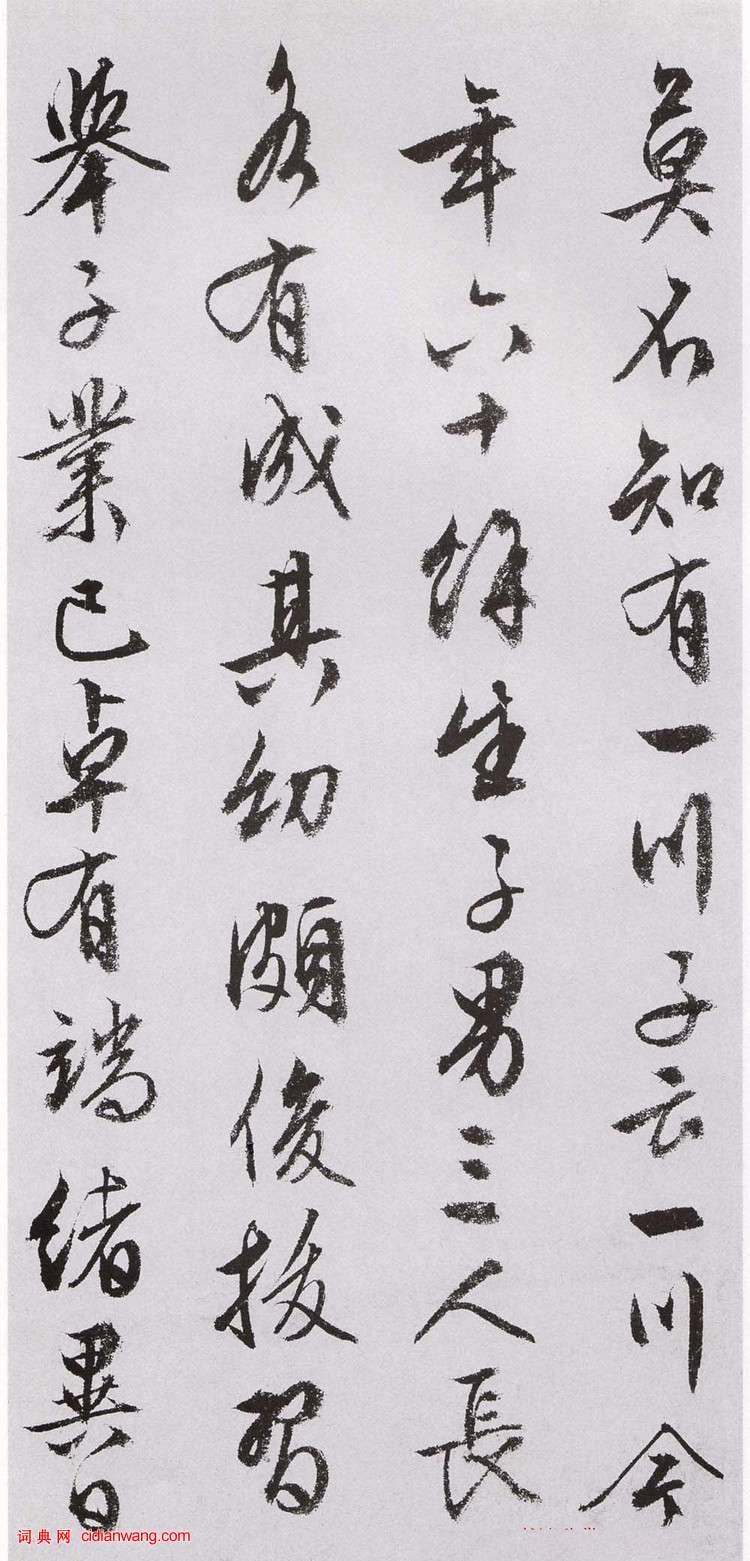 莫不知有一川子云一川今
年六十餘生子男三人長
各有成其幼頗俊拔習
舉子業已卓有端緒異日
词典网 cidianwang.com